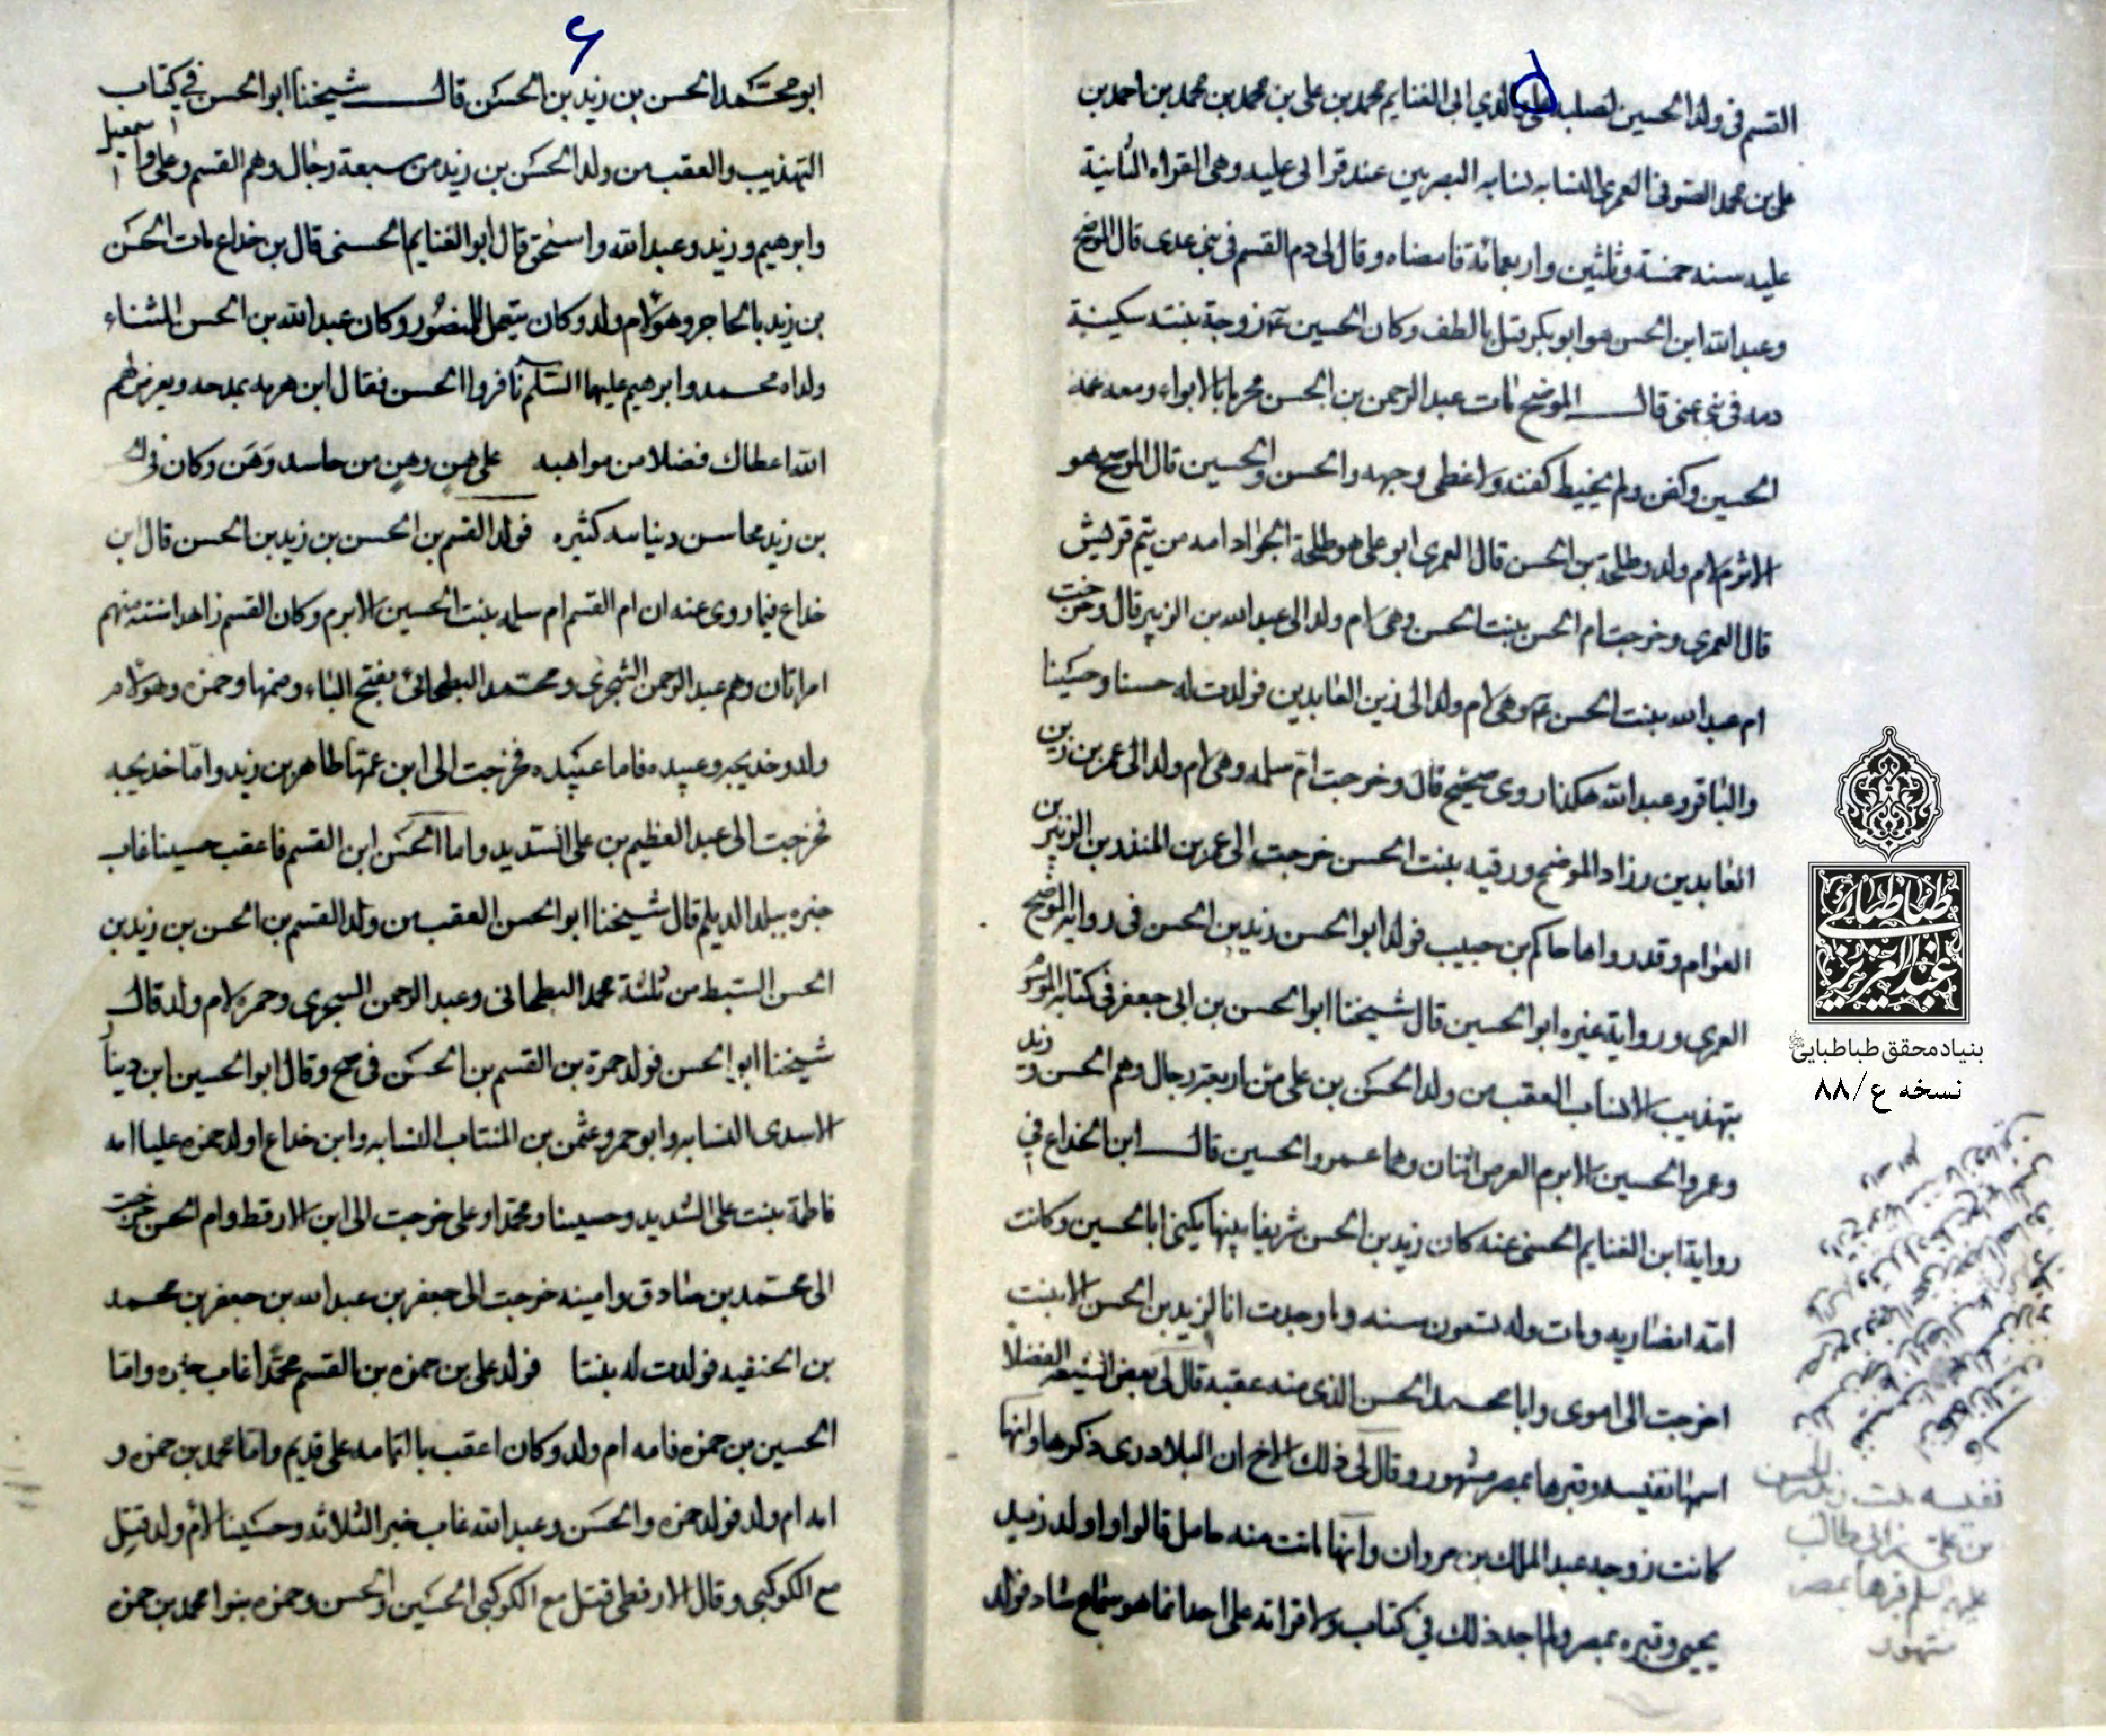 القسم فى ولد الحسين لصلبه على والدي ابى الغنايم محمد بن على بن محمد بن محمد بن احمد بن
على بن محمد الصوفى العمرى النسابه نسابه البصريين عند قراتى عليه وهى القراه الثانية
عليه سنه خمسة وثلثين واربعمائة فامضاه وقال لى دم القسم فى بنى عدى قال الموضح
وعبد الله ابن الحسن هو ابو بكر قتل بالطف وكان الحسين عم زوجة بنته سكينة
دمه فى بنى غنى قال الموضح مات عبد الرحمن بن الحسن محرما بالابواء ومعه عمه
الحسين وكفن ولم يخيط كفنه ولا غطى وجهه والحسن والحسين قال الموضح هو
الاثرم لام ولد وطلحة بن الحسن قال العمرى ابو على هو طلحة الجواد امه من تيم قريش
قال العمرى وخرجت ام الحسن بنت الحسن وهى لام ولد الى عبد الله بن الزبير قال وخرجت
ام عبد الله بنت الحسن عم وهى لام ولد الى زين العابدين فولدت له حسنا وحسينا
والباقر وعبد الله هكذا روى صحيح قال وخرجت ام سلمه وهى لام ولد الى عمر بن زين
العابدين وزاد الموضح ورقيه بنت الحسن خرجت الى عمر بن المنذر بن الزبير بن
العوام وقد رواها حاكم بن حبيب فولد ابو الحسن زيد بن الحسن فى رواية الموضح
العمرى ورواية غيره ابو الحسين قال شيخنا ابو الحسن بن ابى جعفر فى كتابه الموسوم
بتهذيب الانساب العقب من ولد الحسن بن على من اربعة رجال وهم الحسن وزيد
وعمر والحسين الاثرم انقرض اثنان وهما عمرو والحسين قال ابن الخداع فى
رواية ابن الغنايم الحسنى عنه كان زيد بن الحسن شريفا نبيها يكنى ابا الحسين وكانت
امه انصاريه ومات وله تسعون سنه وما وجدت انا لزيد بن الحسن الا بنت
اخرجت الى اموى وابا محمد الحسن الذى منه عقبه قال لى بعض الشيعه الفضلا
اسمها نفيسه وقبرها بمصر مشهور وقال لى ذلك الاخ ان البلادرى ذكرها وانها
كانت زوجه عبد الملك بن مروان وانها ماتت منه حامل قالوا واولد زيد
يحيى وقبره بمصر ولم اجد ذلك فى كتاب ولا قراته على احد انما هو سماع شاد فولد
نفيسه بنت زيد بن الحسن
بن على بن ابى طالب
عليه السلم قبرها بمصر
مشهور
طباطبائى
عبد العزيز
بنیاد محقق طباطبایی
نسخه ع/۸۸
۶
ابو محمد الحسن بن زيد بن الحسن قال شيخنا ابو الحسن فى كتاب
التهذيب والعقب من ولد الحسن بن زيد من سبعة رجال وهم القسم وعلى واسمعيل
وابرهيم وزيد وعبد الله واسحق قال ابو الغنايم الحسنى قال بن خداع مات الحسن
بن زيد بالحاجر وهو لام ولد وكان يتعمل للمنصور وكان عبد الله بن الحسن المثناء
ولداه محمد وابرهيم عليهما السلم نافروا الحسن فقال ابن هرمه يمدحه ويعرض بهم
الله اعطاك فضلا من مواهبه على هن وهن من حاسد وهن وكان فى
بن زيد محاسن دنياسه كثيره فولد القسم بن الحسن بن زيد بن الحسن قال ابن
خداع فيما روى عنه ان ام القسم ام سلمه بنت الحسين الاثرم وكان القسم زاهدا ستة منهم
امراتان وهم عبد الرحمن الشجرى ومحمد البطحانى بفتح الباء وضمها وحمزه وهو لام
ولد وخديجه وعبيده فاما عبيده فخرجت الى ابن عمها طاهر بن زيد واما خديجه
فخرجت الى عبد العظيم بن على الشديد واما الحسن ابن القسم فاعقب حسينا غاب
خبره ببلد الديلم قال شيخنا ابو الحسن العقب من ولد القسم بن الحسن بن زيد بن
الحسن السبط من ثلثة محمد البطحانى وعبد الرحمن السجرى وحمزه لام ولد قال
شيخنا ابو الحسن فولد حمزة بن القسم بن الحسن فى صح وقال ابو الحسين ابن دينار
الاسدى النسابه وابو عمرو عثمن بن المنتاب النسابه وابن خداع اولد حمزه عليا امه
فاطمة بنت على الشديد وحسينا ومحمدا وعلى خرجت الى ابن الارقط وام الحسن خرجت
الى محمد بن صادق وامينه خرجت الى جعفر بن عبد الله بن جعفر بن محمد
بن الحنفيه فولدت له بنتا فولد على بن حمزه بن القسم محمدا غاب خبره واما
الحسين بن حمزه فامه ام ولد وكان اعقب باليمامه على قديم واما محمد بن حمزه و
امه ام ولد فولد حمزه والحسن وعبد الله غاب خبر الثلاثه وحسينا لام ولد قتل
مع الكوكبى وقال الارقطى قتل مع الكوكبى الحسين والحسن وحمزه بنوا محمد بن حمزه